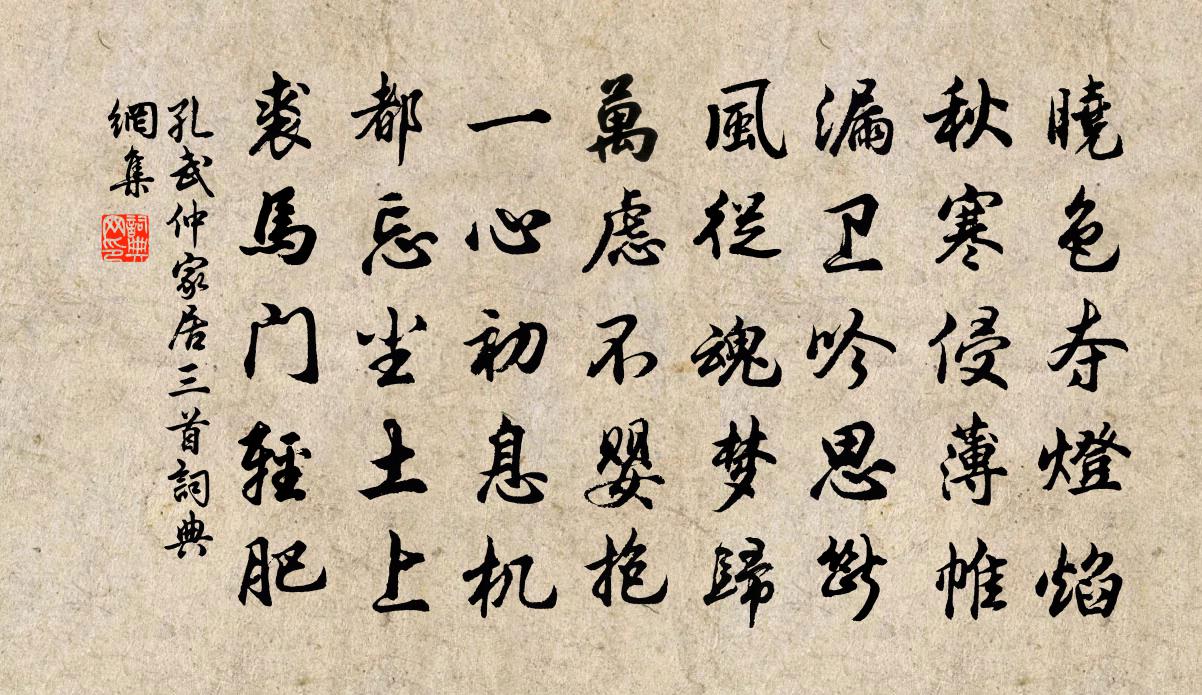 曉色夺燈焰
秋寒侵薄帷
漏卫吟思斷
風從魂梦歸
萬慮不嬰抱
一心初息机
都忘尘土上
裘馬门輕肥
孔武仲家居三首詞典
網集
詞典
网印